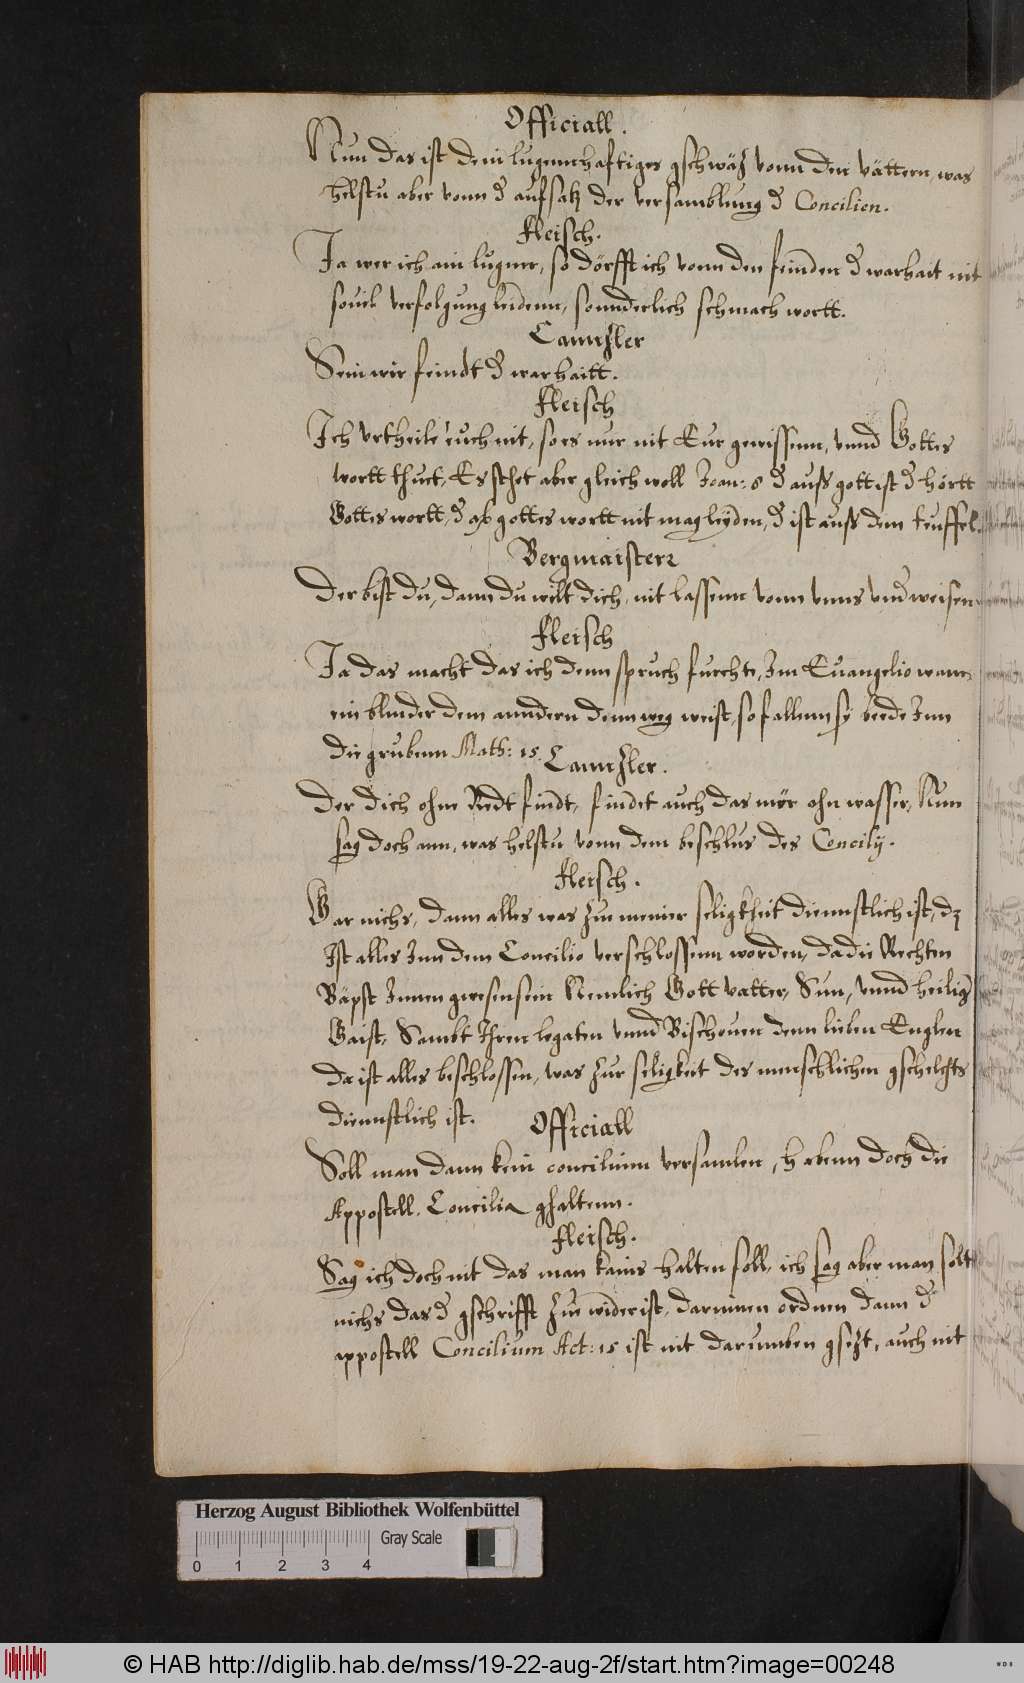 Officiall.
Nun das ist dein lugennhaftiges gschwäz vonn den vättern, was
helstu aber vonn d' aufsaz der versamblung d' Concilien.
fleisch.
Ja wer ich ain lugner, so dörfft ich vonn den feinden d' warhait nit
souil verfolgung leidenn, sonnderlich schmach wortt.
Cannzler
Sein wir feindt d' warhaitt.
fleisch
Ich vrtheile euch nit, so es nur nit Eur gewissenn, vnnd Gottes
wortt thuet, Es sthet aber gleich woll Joan: 8 d' auß gott ist d' hörtt
Gottes wortt, d' aber gottes wortt nit mag leyden, d' ist auß dem teuffel.
Bergmaister
Der bist du, dann du wilt dich nit lassenn vonn vnns vnd'weisen
fleisch
Ja das macht das ich denn spruch furchte, Im Euangelio wann
ein blinder dem anndern denn weg weist, so fallenn sy beede Inn
die grubenn Math: 15.
Cannzler.
Der dich ohne Redt findt, findet auch das mör ohn wasser, Nun
sag doch ann, was helstu vonn dem beschlus des Concily.
fleisch.
Gar nichs, dann alles was zu meiner seligkheit diennstlich ist, dz
Ist alles Inn dem Concilio verschlossenn worden, da die Rechten
Bäpst Innen gwesen sein Nemlich Gott vatter, Sun, vnnd heilig
Gaist, Sambt Ihren legaten vnnd Bischouen denn lieben Englen
da ist alles beschlossen, was zur seligkeit des menschlichen gschlechts
diennstlich ist.
Officiall
Soll man dann kein concilium versamlen, habenn doch die
Appostell Concilia ghaltenn.
fleisch.
Sag ich doch nit das man kains halten soll, ich sag aber man solt
nichs das d' gschrifft zu wider ist, darinnen ordnen dann d'
appostell Concilium Act: 15 ist nit darumben gsezt, auch nit
Herzog August Bibliothek Wolfenbüttel
Gray Scale
0 1 2 3 4
© HAB http://diglib.hab.de/mss/19-22-aug-2f/start.htm?image=00248